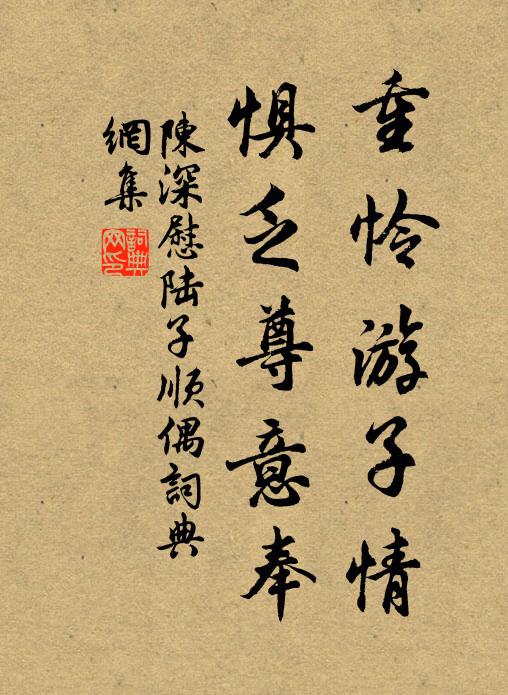 重怜游子情
惧乏尊意奉
陳深慰陆子顺偶詞典
網集
詞典网印